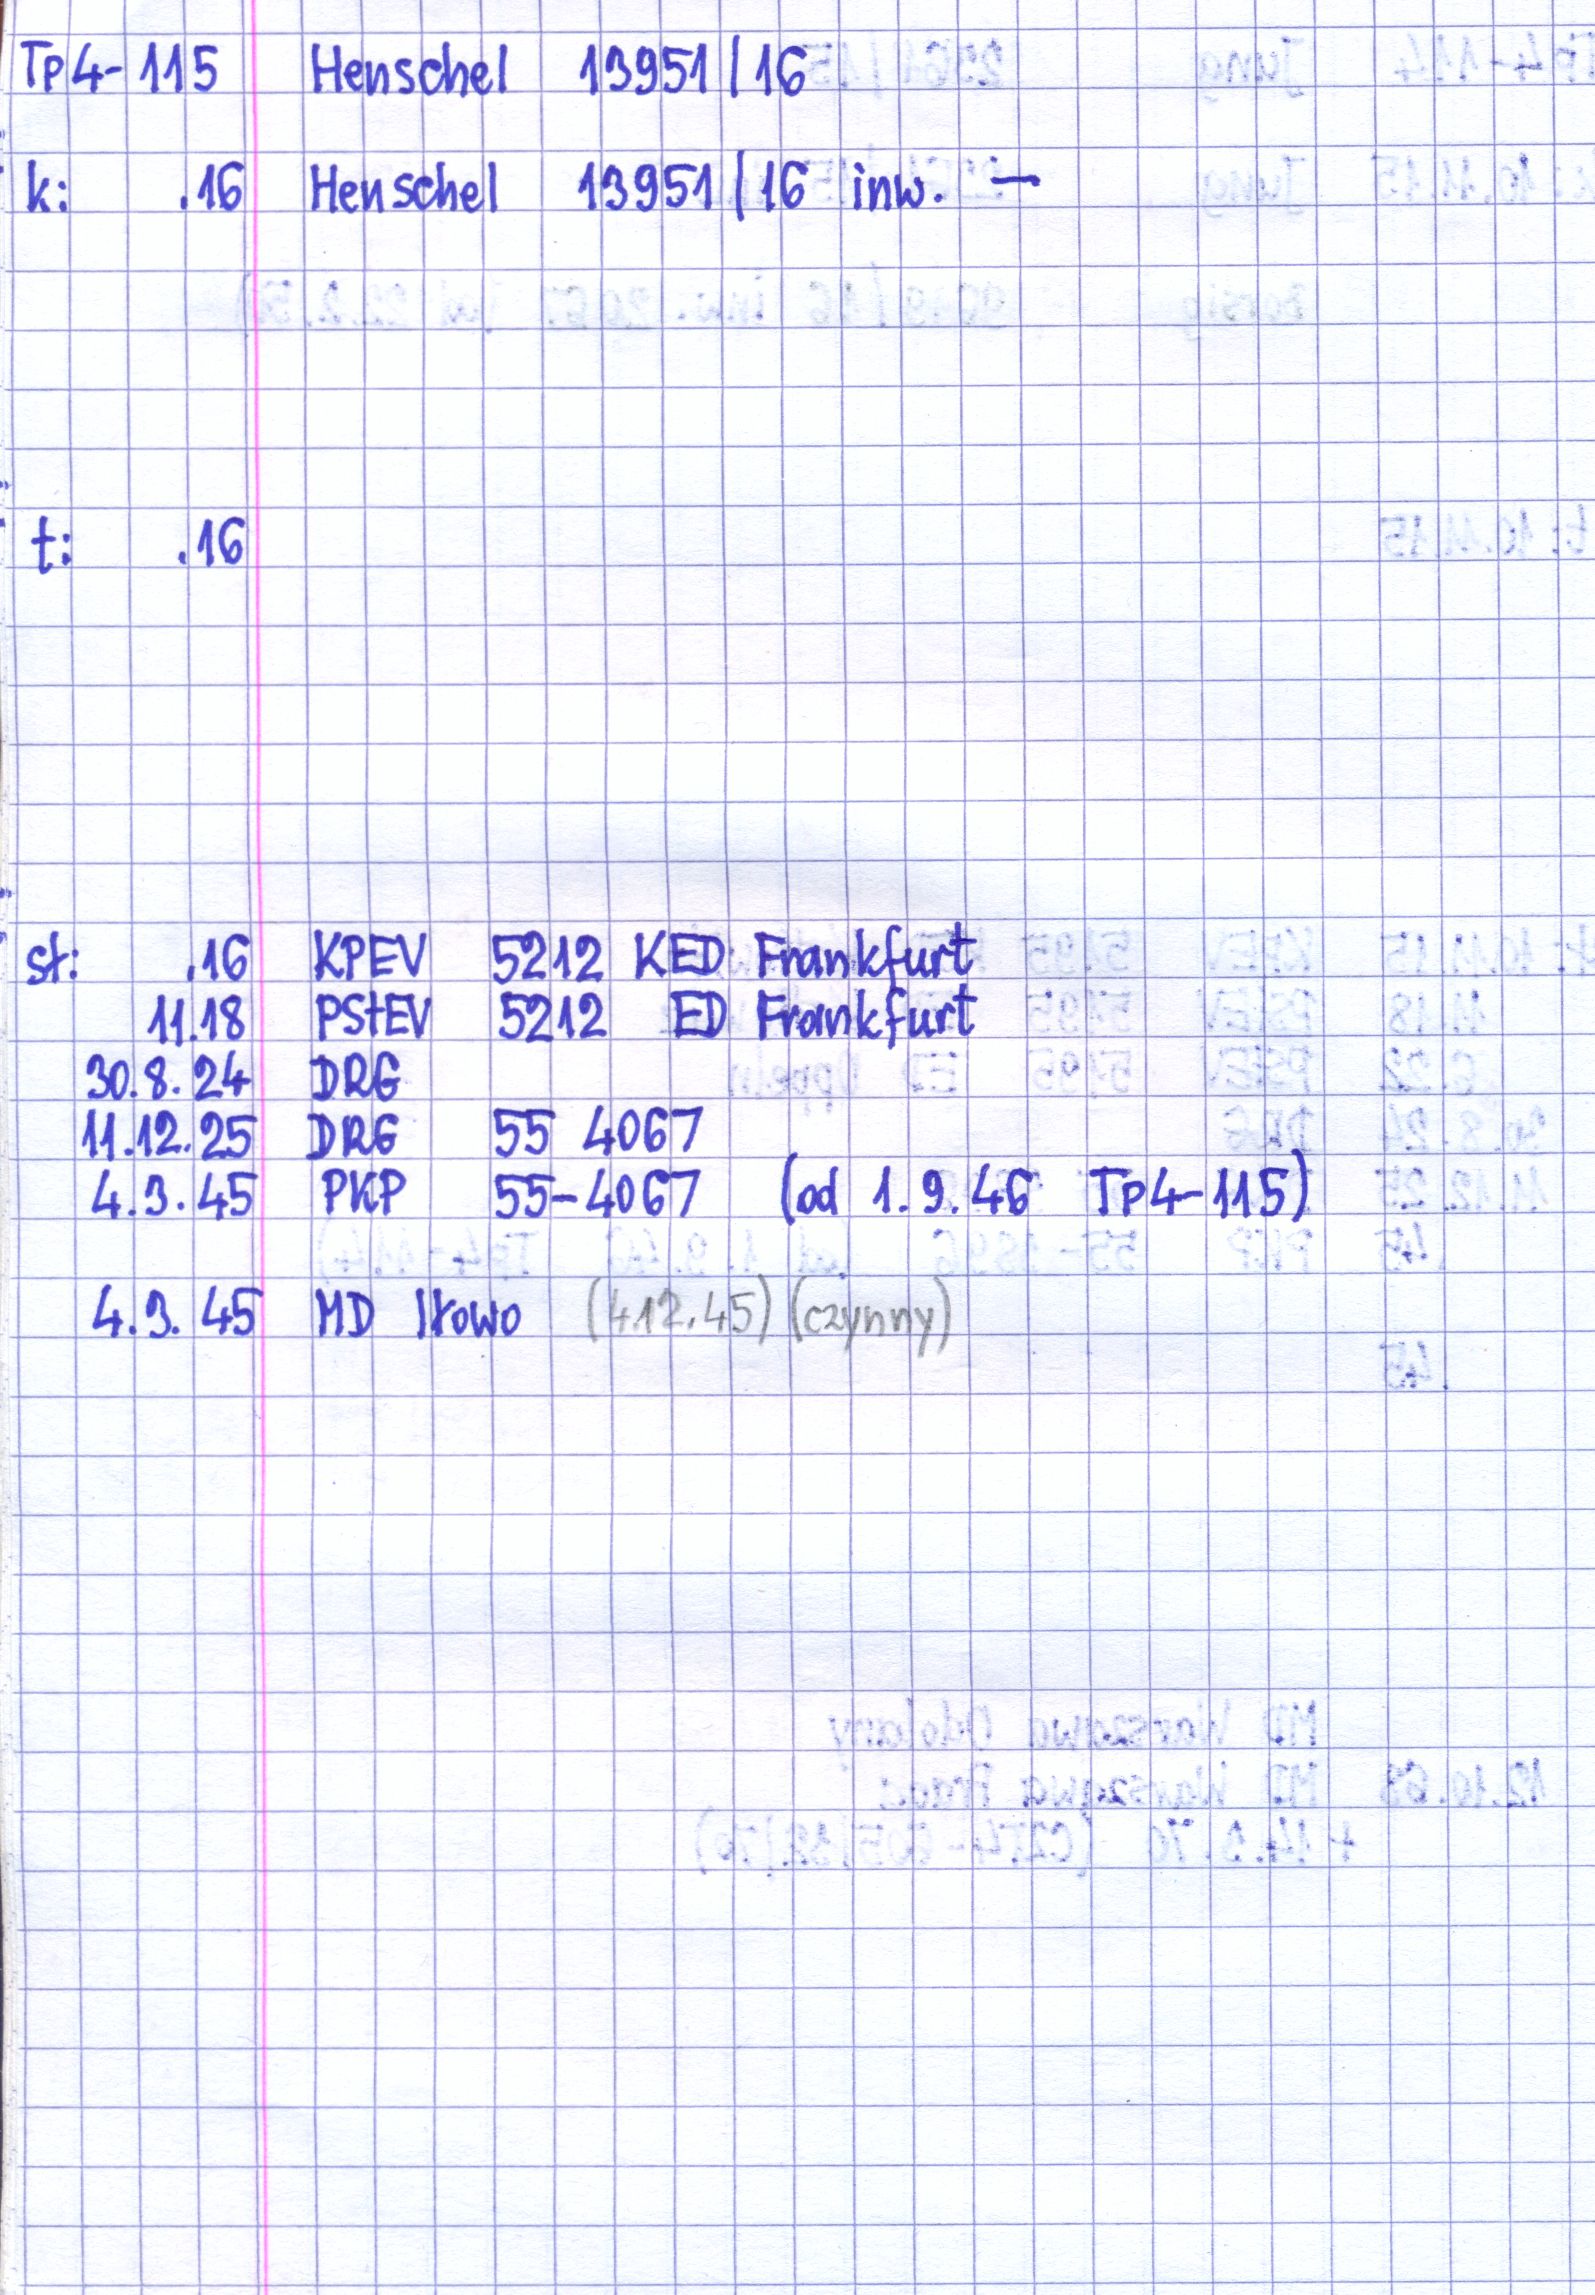 Tp4-115 Henschel 13951/16
k: .16 Henschel 13951/16 inw. —
t: .16
st: .16 KPEV 5212 KED Frankfurt
11.18 PStEV 5212 ED Frankfurt
30.8.24 DRG
11.12.25 DRG 55 4067
4.3.45 PKP 55-4067 (od 1.9.46 Tp4-115)
4.3.45 MD Iłowo (4.12.45) (czynny)